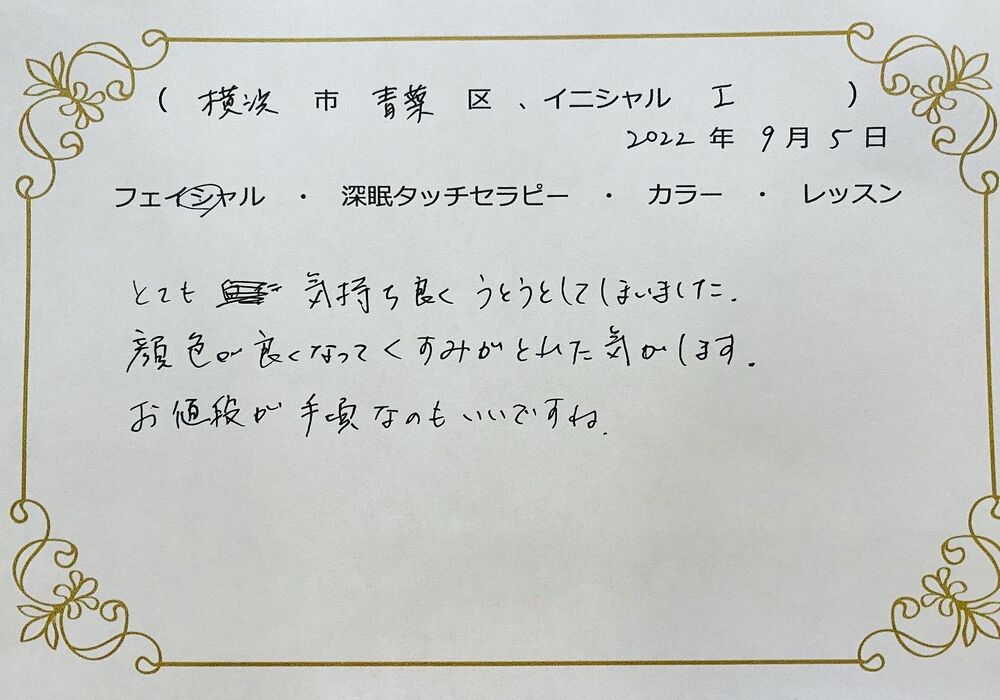 ( 横浜 市 青葉 区 、イニシャル I )
2022 年 9 月 5 日
フェイシャル ・ 深眠タッチセラピー ・ カラー ・ レッスン
とても 気持ち良く うとうとしてしまいました.
顔色が良くなってくすみがとれた気がします.
お値段が手頃なのもいいですね.